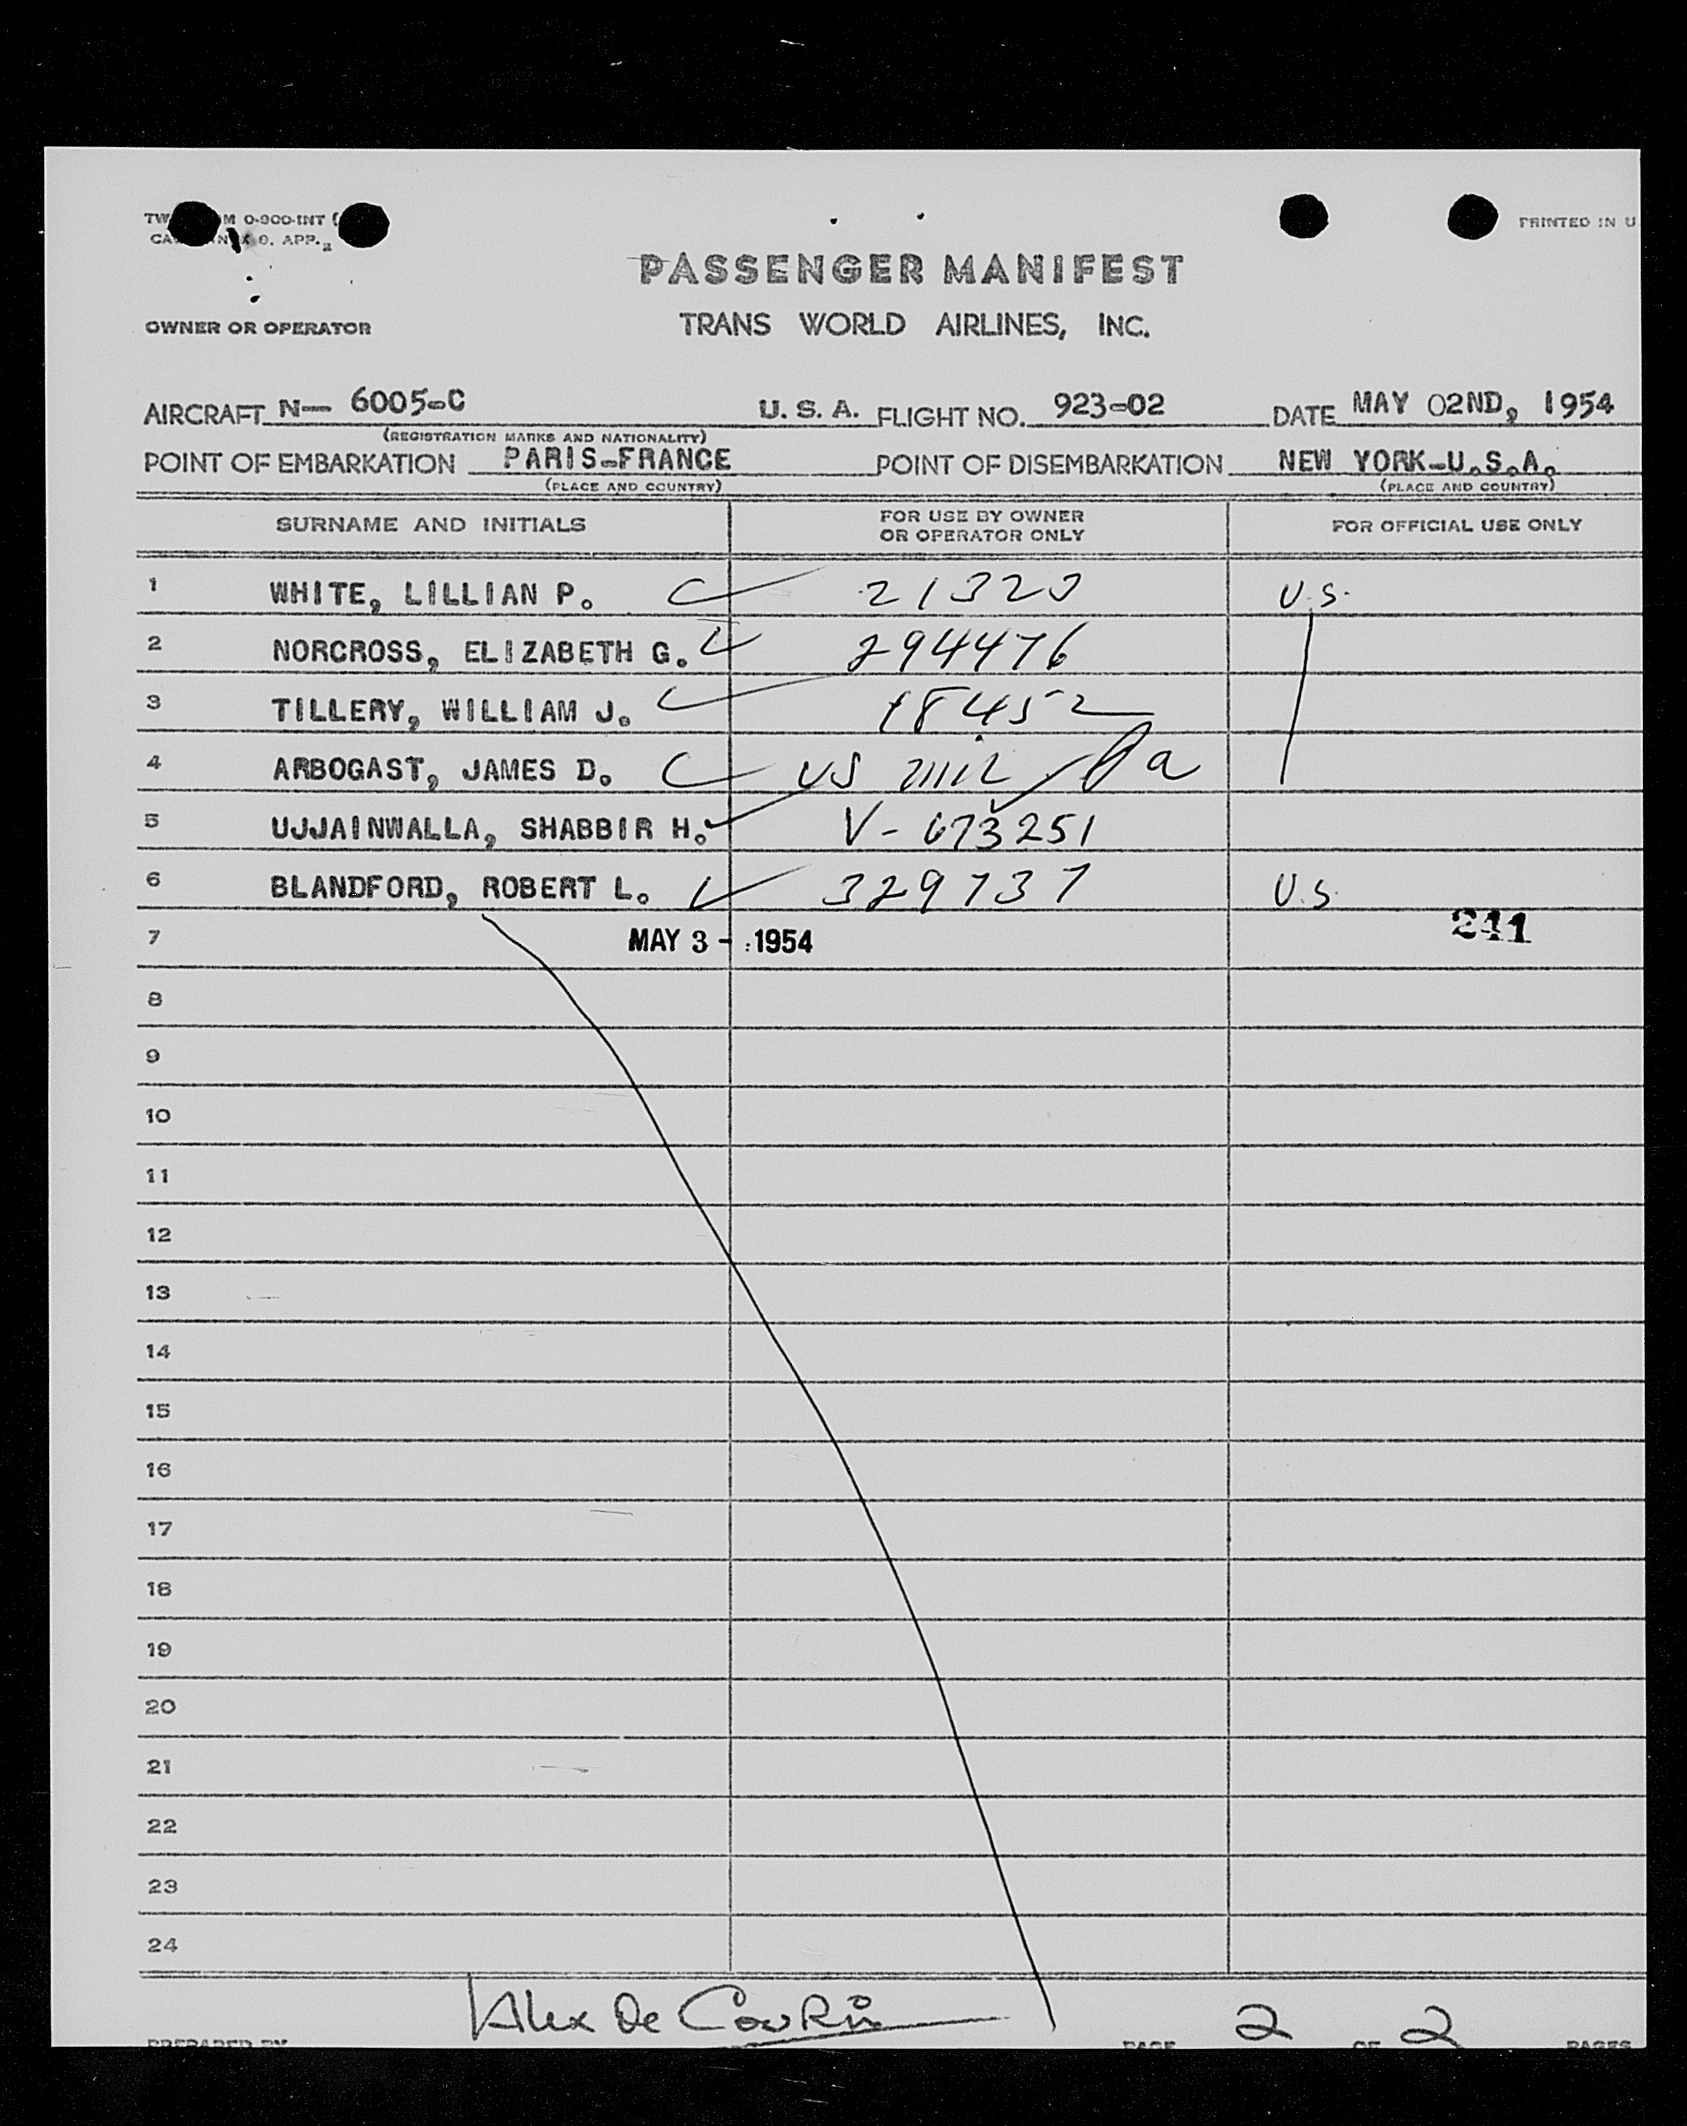 TW M O-900-INT (
PRINTED IN U
CA N X 9. APP. 2
PASSENGER MANIFEST
OWNER OR OPERATOR
TRANS WORLD AIRLINES, INC.
AIRCRAFT N— 6005-C U.S.A. FLIGHT NO. 923-02 DATE MAY 02ND, 1954
(REGISTRATION MARKS AND NATIONALITY)
POINT OF EMBARKATION PARIS-FRANCE POINT OF DISEMBARKATION NEW YORK-U.S.A.
(PLACE AND COUNTRY) (PLACE AND COUNTRY)
SURNAME AND INITIALS FOR USE BY OWNER OR OPERATOR ONLY FOR OFFICIAL USE ONLY
1 WHITE, LILLIAN P. 21323 U.S.
2 NORCROSS, ELIZABETH G. 294476
3 TILLERY, WILLIAM J. 18452
4 ARBOGAST, JAMES D. US mil
5 UJJAINWALLA, SHABBIR H. V-673251
6 BLANDFORD, ROBERT L. 329737 U.S.
7 MAY 3 - 1954 241
8
9
10
11
12
13
14
15
16
17
18
19
20
21
22
23
24
Alex De
PREPARED BY PAGE 2 OF 2 PAGES